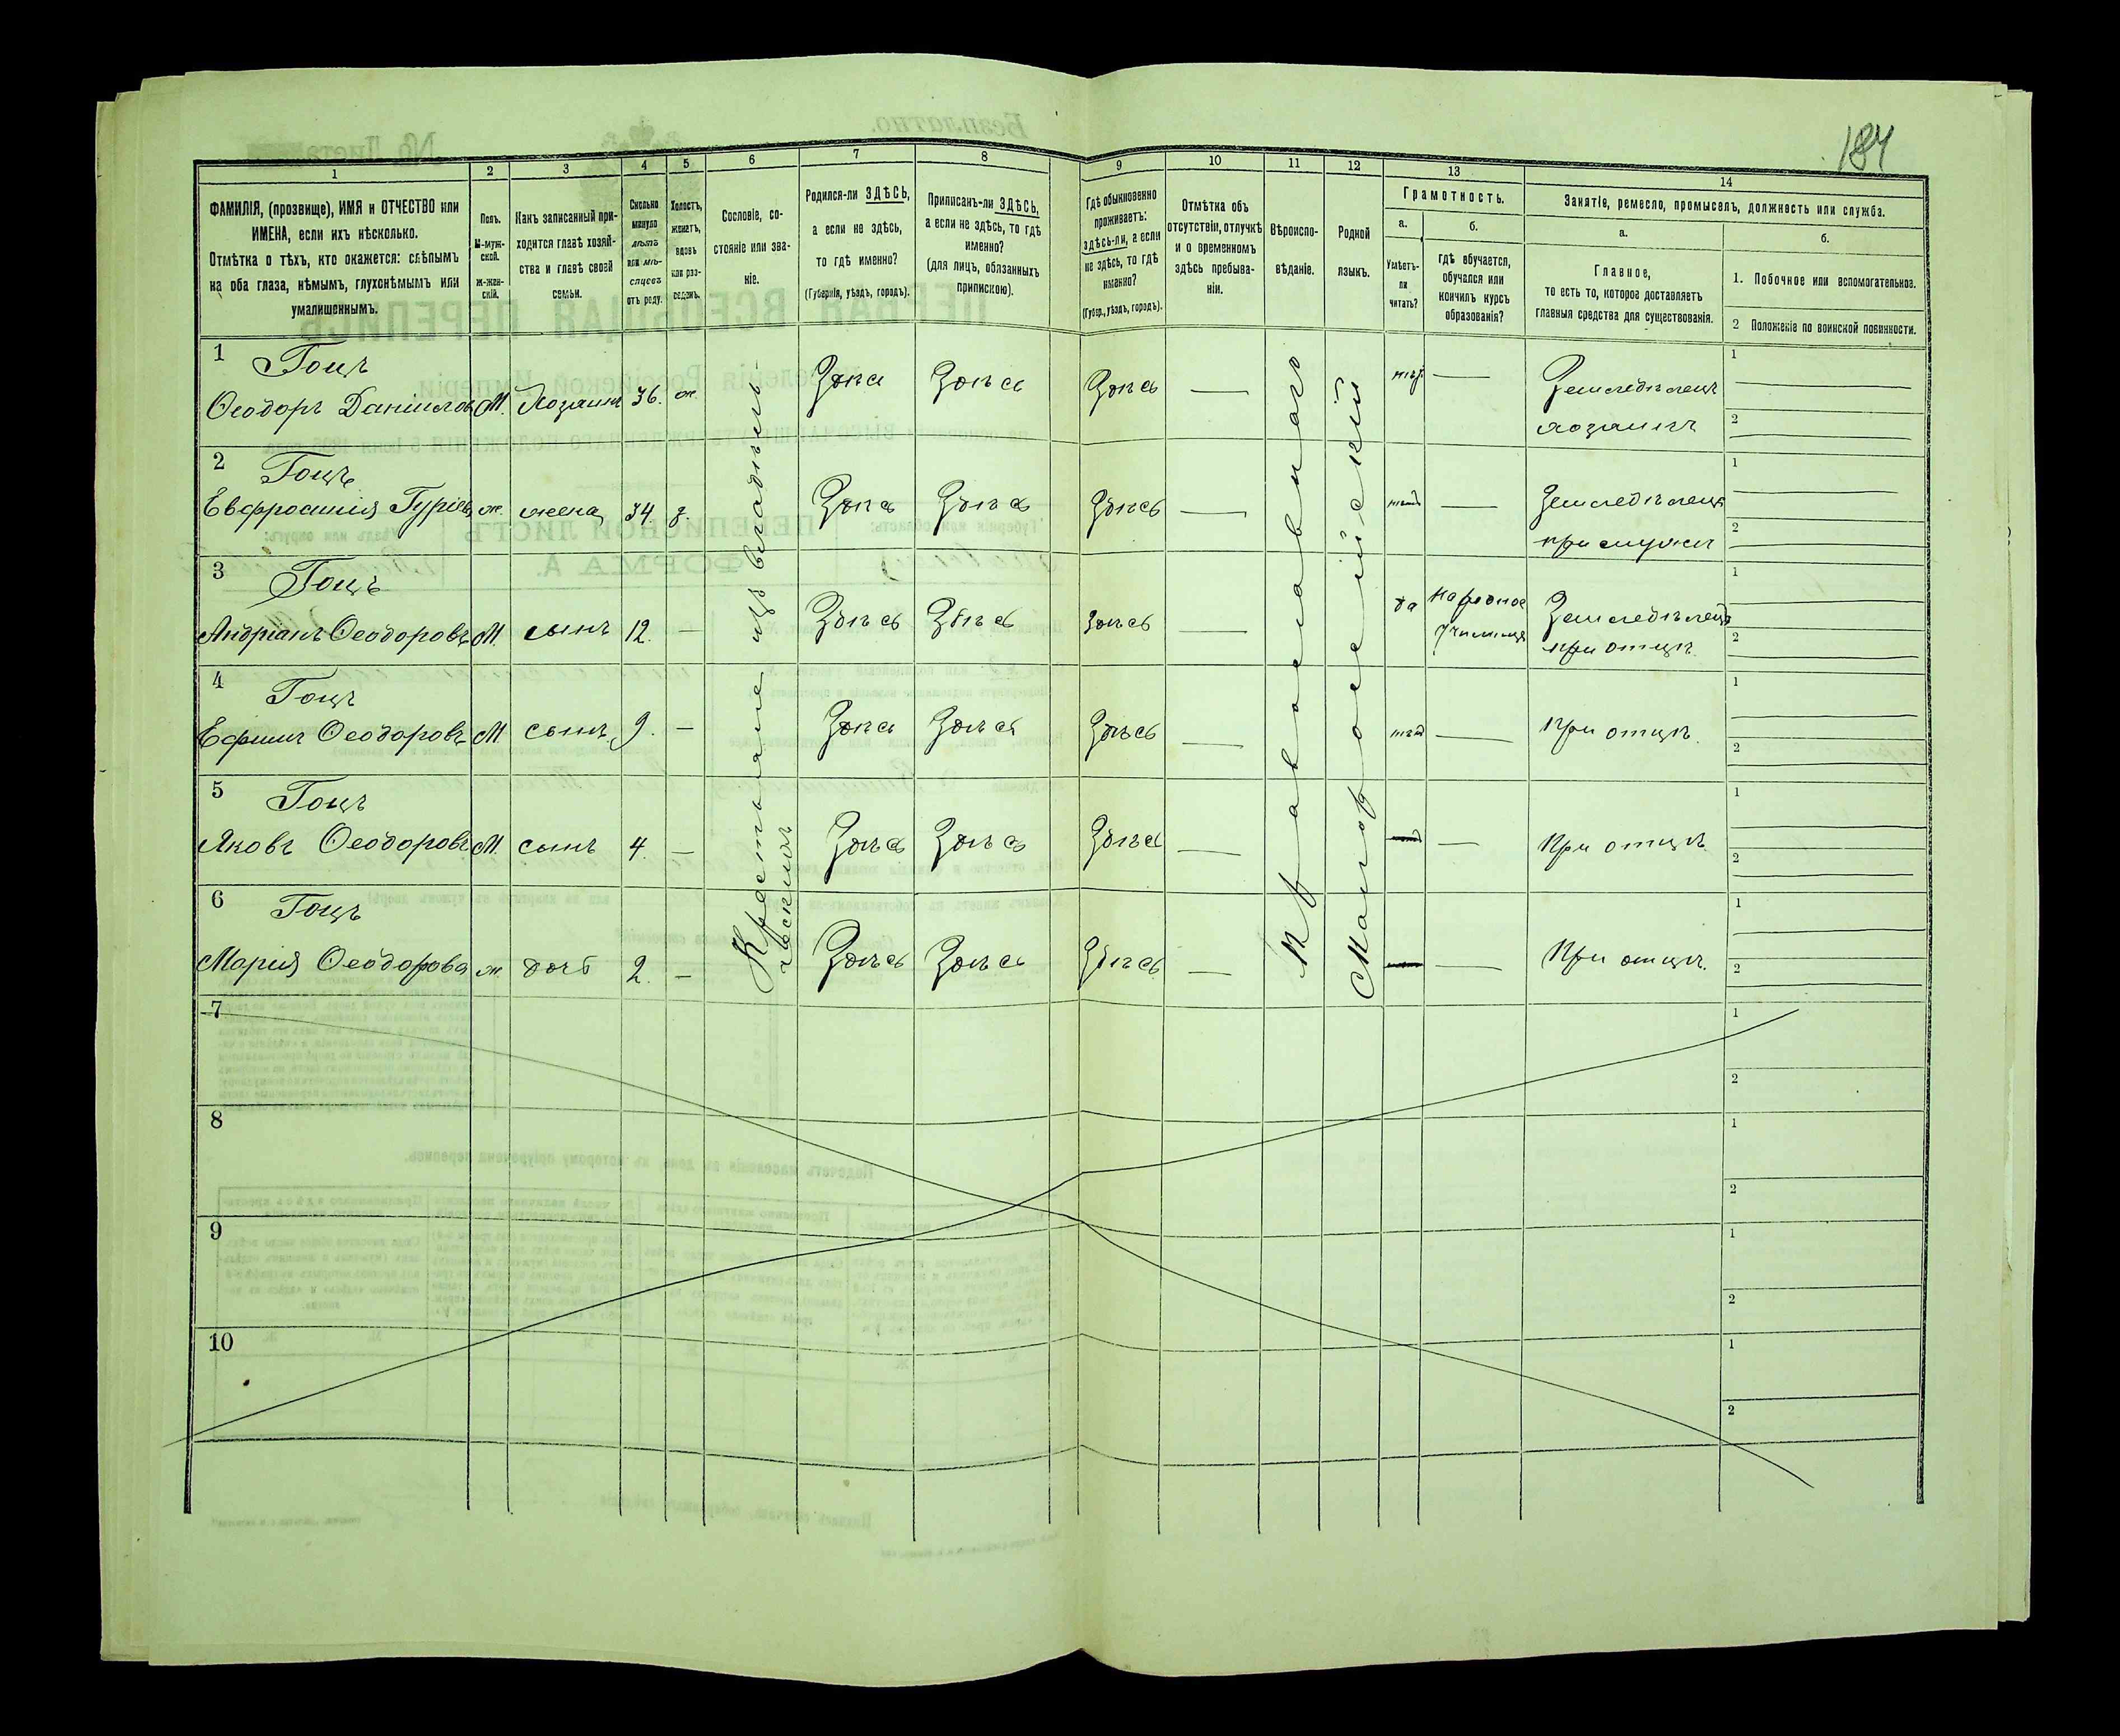 184
1
2
3
4
5
6
7
8
9
10
11
12
13
14
ФАМИЛІЯ, (прозвище), ИМЯ и ОТЧЕСТВО или
ИМЕНА, если ихъ нѣсколько.
Отмѣтка о тѣхъ, кто окажется: слѣпымъ
на оба глаза, нѣмымъ, глухонѣмымъ или
умалишеннымъ.
Полъ.
М-муж-
ской.
ж-жен-
скій.
Какъ записанный при-
ходится главѣ хозяй-
ства и главѣ своей
семьи.
Сколько
минуло
лѣтъ
или мѣ-
сяцевъ
отъ роду.
Холостъ,
женатъ,
вдовъ
или раз-
веденъ.
Сословіе, со-
стояніе или зва-
ніе.
Родился-ли ЗДѢСЬ,
а если не здѣсь,
то гдѣ именно?
(Губернія, уѣздъ, городъ).
Приписанъ-ли ЗДѢСЬ,
а если не здѣсь, то гдѣ
именно?
(для лицъ, обязанныхъ
припискою).
Гдѣ обыкновенно
проживаетъ:
здѣсь-ли, а если
не здѣсь, то гдѣ
именно?
(Губер., уѣздъ, городъ).
Отмѣтка объ
отсутствіи, отлучкѣ
и о временномъ
здѣсь пребыва-
ніи.
Вѣроиспо-
вѣданіе.
Родной
языкъ.
Грамотность.
а.
Умѣетъ-
ли
читать?
б.
гдѣ обучается,
обучался или
кончилъ курсъ
образованія?
Занятіе, ремесло, промыселъ, должность или служба.
а.
Главное,
то есть то, которое доставляетъ
главныя средства для существованія.
б.
1. Побочное или вспомогательное.
2 Положеніе по воинской повинности.
Крестьяне изъ
Православнаго
Малороссійскій
1 Гоцъ
Ѳеодоръ Даніиловъ М. Хозяинъ 36. ж. Здѣсь Здѣсь Здѣсь — — Земледѣлецъ 1
хозяинъ 2
2 Гоцъ
Евфросинія Гуріева ж. жена 34. з. Здѣсь Здѣсь Здѣсь — — Земледѣлецъ 1
при мужѣ 2
3 Гоцъ
Андріанъ Ѳеодоровъ М. сынъ 12. — Здѣсь Здѣсь Здѣсь — да народное Земледѣлецъ 1
училище при отцѣ 2
4 Гоцъ
Ефимъ Ѳеодоровъ М сынъ 9. — Здѣсь Здѣсь Здѣсь — — При отцѣ. 1
2
5 Гоцъ
Яковъ Ѳеодоровъ М. сынъ 4. — Здѣсь Здѣсь Здѣсь — — При отцѣ 1
2
6 Гоцъ
Марія Ѳеодорова ж. дочь 2. — Здѣсь Здѣсь Здѣсь — — При отцѣ. 1
2
7 1
2
8 1
2
9 1
2
10 1
2